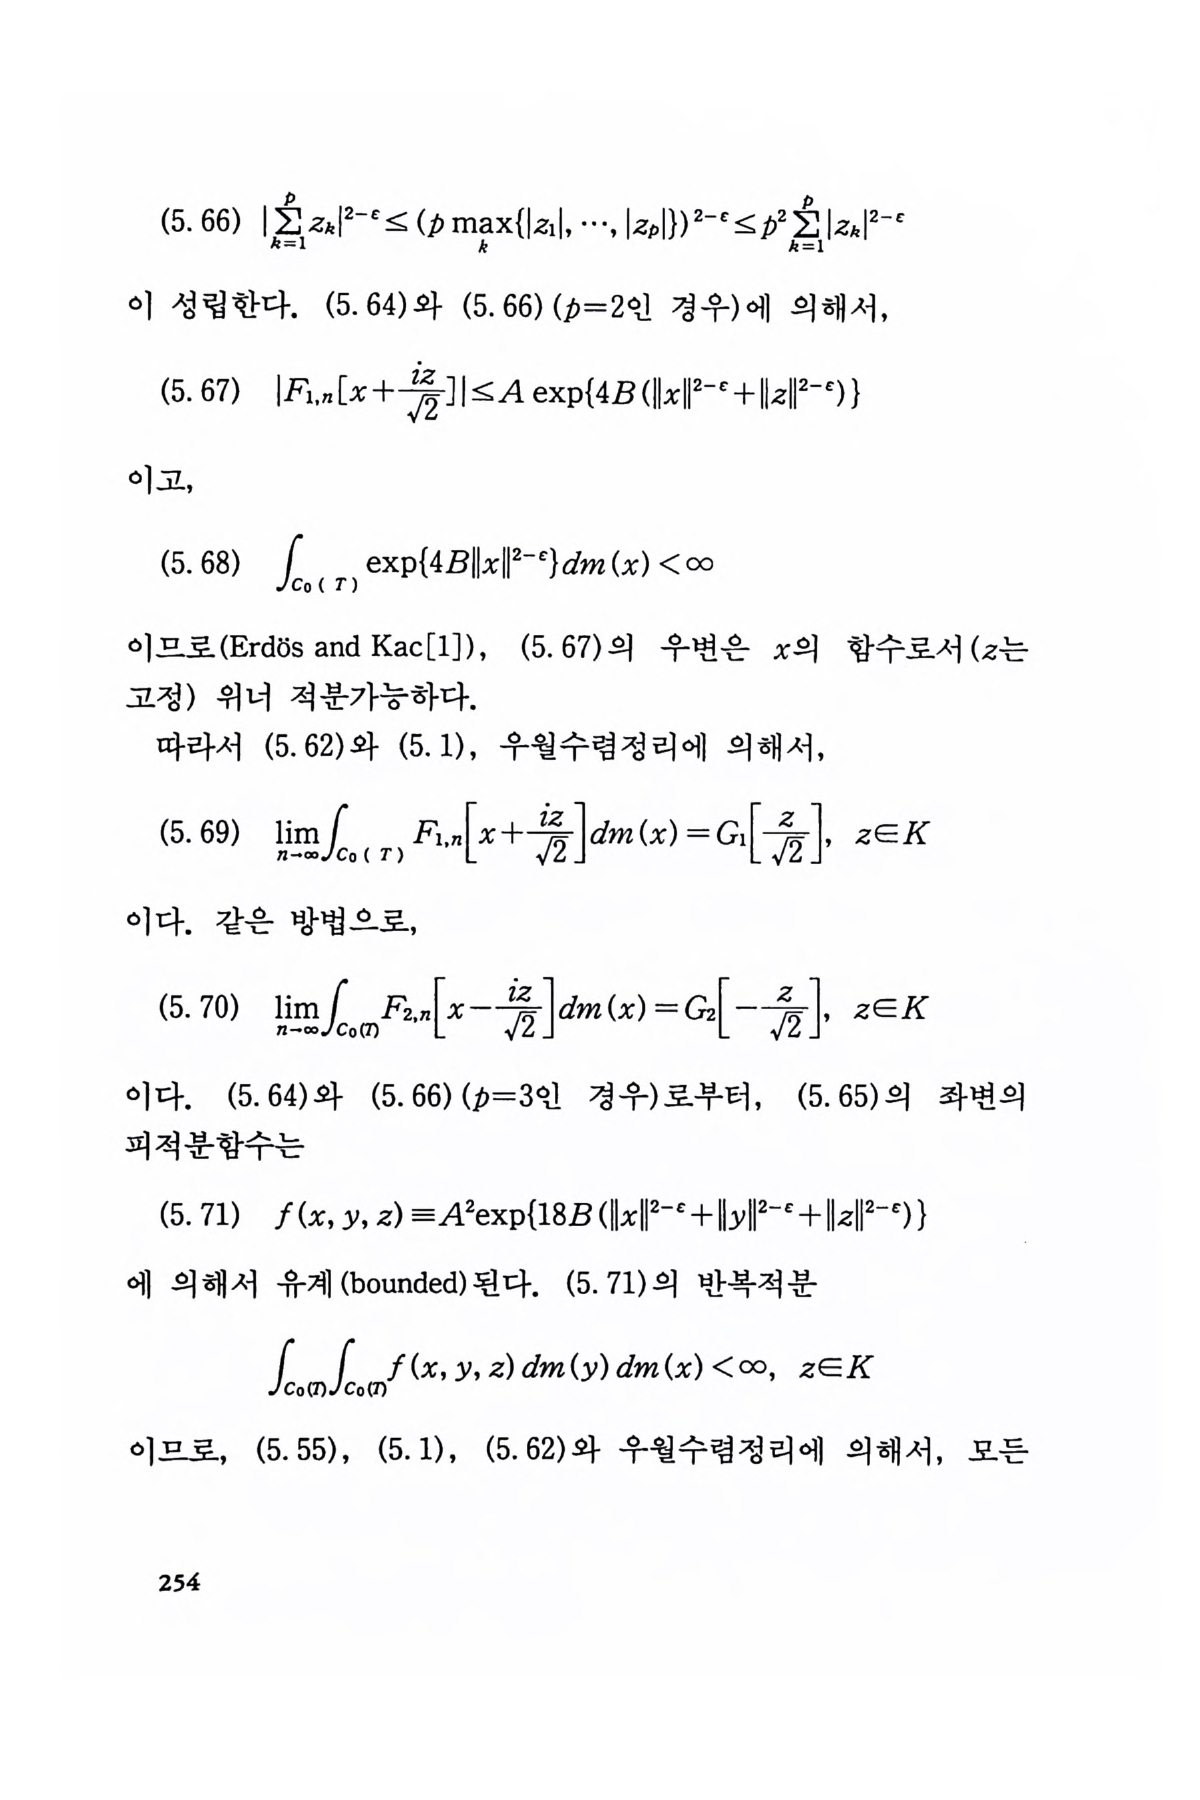 (5. 66) |∑_{k=1}^{p} z_k|^{2-ε} ≤ (p max_k{|z_1|, ⋯, |z_p|})^{2-ε} ≤ p^2 ∑_{k=1}^{p} |z_k|^{2-ε}
이 성립한다. (5. 64)와 (5. 66) (p=2인 경우)에 의해서,
(5. 67) |F_{1,n}[x+\frac{iz}{√2}]| ≤ A exp{4B(‖x‖^{2-ε}+‖z‖^{2-ε})}
이고,
(5. 68) ∫_{C_0( T)} exp{4B‖x‖^{2-ε}}dm(x) <∞
이므로(Erdös and Kac[1]), (5. 67)의 우변은 x의 함수로서(z는
고정) 위너 적분가능하다.
따라서 (5. 62)와 (5. 1), 우월수렴정리에 의해서,
(5. 69) lim_{n→∞} ∫_{C_0( T)} F_{1,n}[x+\frac{iz}{√2}]dm(x) = G_1[\frac{z}{√2}], z∈K
이다. 같은 방법으로,
(5. 70) lim_{n→∞} ∫_{C_0(T)} F_{2,n}[x-\frac{iz}{√2}]dm(x) = G_2[-\frac{z}{√2}], z∈K
이다. (5. 64)와 (5. 66) (p=3인 경우)로부터, (5. 65)의 좌변의
피적분함수는
(5. 71) f(x, y, z) ≡ A^2exp{18B(‖x‖^{2-ε}+‖y‖^{2-ε}+‖z‖^{2-ε})}
에 의해서 유계(bounded)된다. (5. 71)의 반복적분
∫_{C_0(T)} ∫_{C_0(T)} f(x, y, z) dm(y) dm(x) <∞, z∈K
이므로, (5. 55), (5. 1), (5. 62)와 우월수렴정리에 의해서, 모든
254